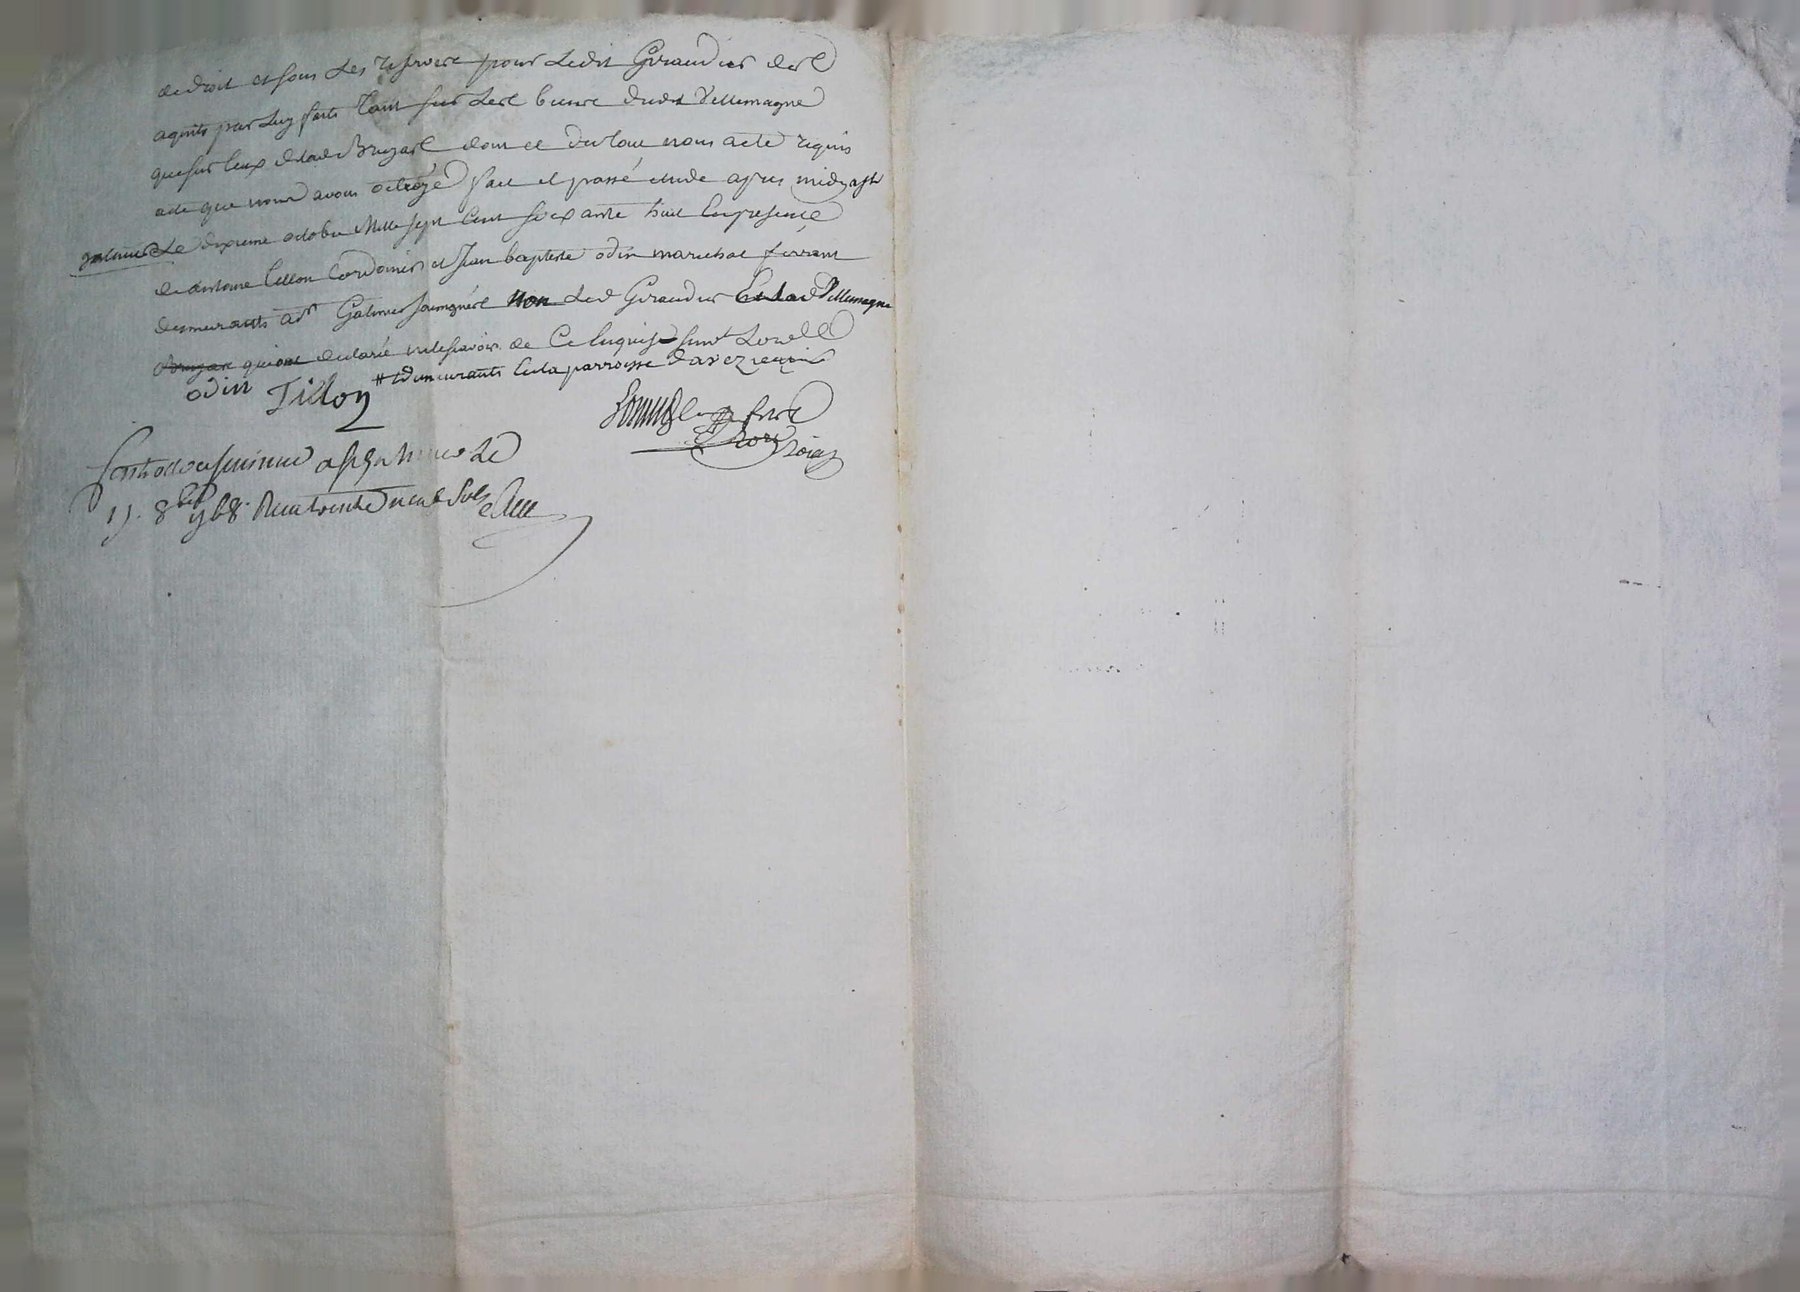 de droit et sous les reserve pour ledit Giraudier des
aquits par luy faits tant sur les biens dudit Vellemagne
que sur ceux de lad Bruyas dont et du tout nous acte requis
acte que nous avons octroyé fait et passé etude apres midy a St
galmier Le dixieme octobre Mille sept cent soixante huit En presence
de antoine tillon Cordonier et Jean baptiste odin marechal ferrant
demeurants aud Galmier soussignés non led Giraudier Vellemagne
Bruyas qui ont declaré ne le scavoir de Ce Enquis Suivt Lord
odin Tillon # demeurants En la parroisse d'avezieux
a St galmier Le
15. 8bre 1768. Recu trente neuf sols